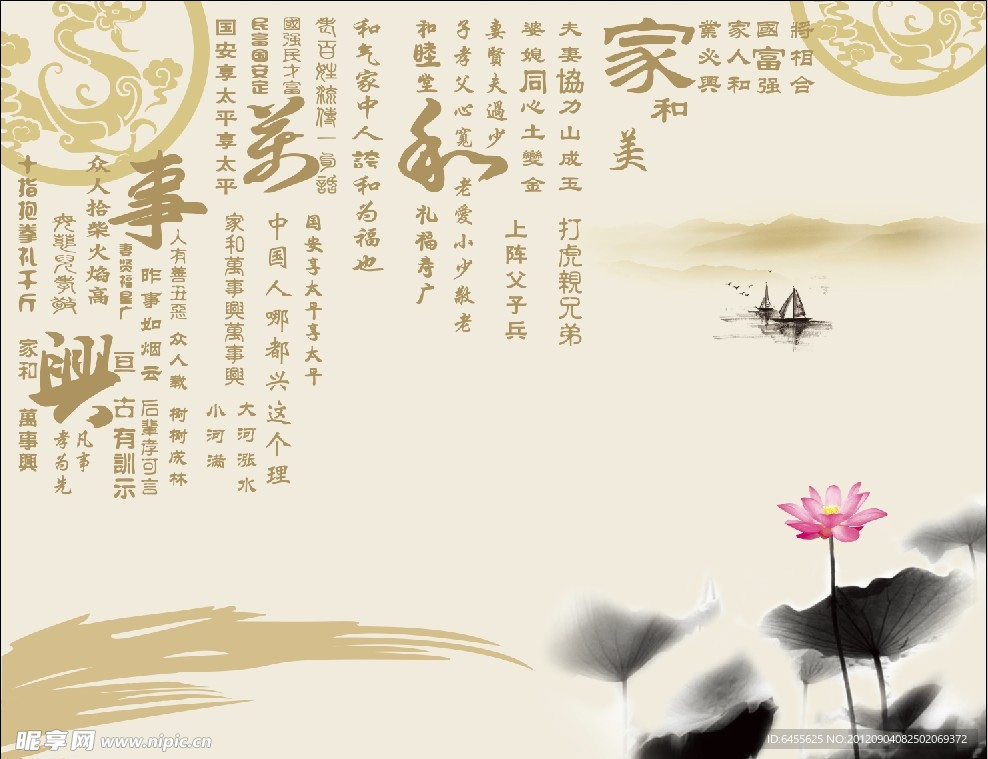 將相合
國富强
家人和
業必興
家
和
美
夫妻協力山成玉
婆媳同心土變金
打虎親兄弟
上阵父子兵
妻賢夫過少
子孝父心寬
老愛小少敬老
和睦堂
和
礼福寿广
和气家中人誇和为福也
老百姓流傳一句諧
國强民才富
民富国安定
国安享太平享太平
萬
国安享太平享太平
中国人哪都兴这个理
家和萬事興萬事興
大河涨水
小河满
事
人有善丑惡
众人载树树成林
昨事如烟云
后辈孝可言
妻贤福星广
亘古有訓示
众人拾柴火焰高
興
凡事
孝为先
十指抱拳礼千斤
家和
萬事興
昵享网 www.nipic.cn
ID:6455625 NO:20120904082502069372